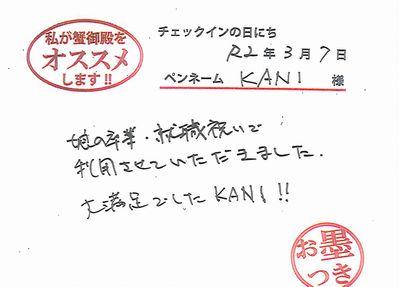 私が蟹御殿を
オススメ
します!!
チェックインの日にち
R2年3月7日
ペンネーム KANI 様
娘の卒業・就職祝いで
利用させていただきました.
大満足でしたKANI!!
お墨
つき